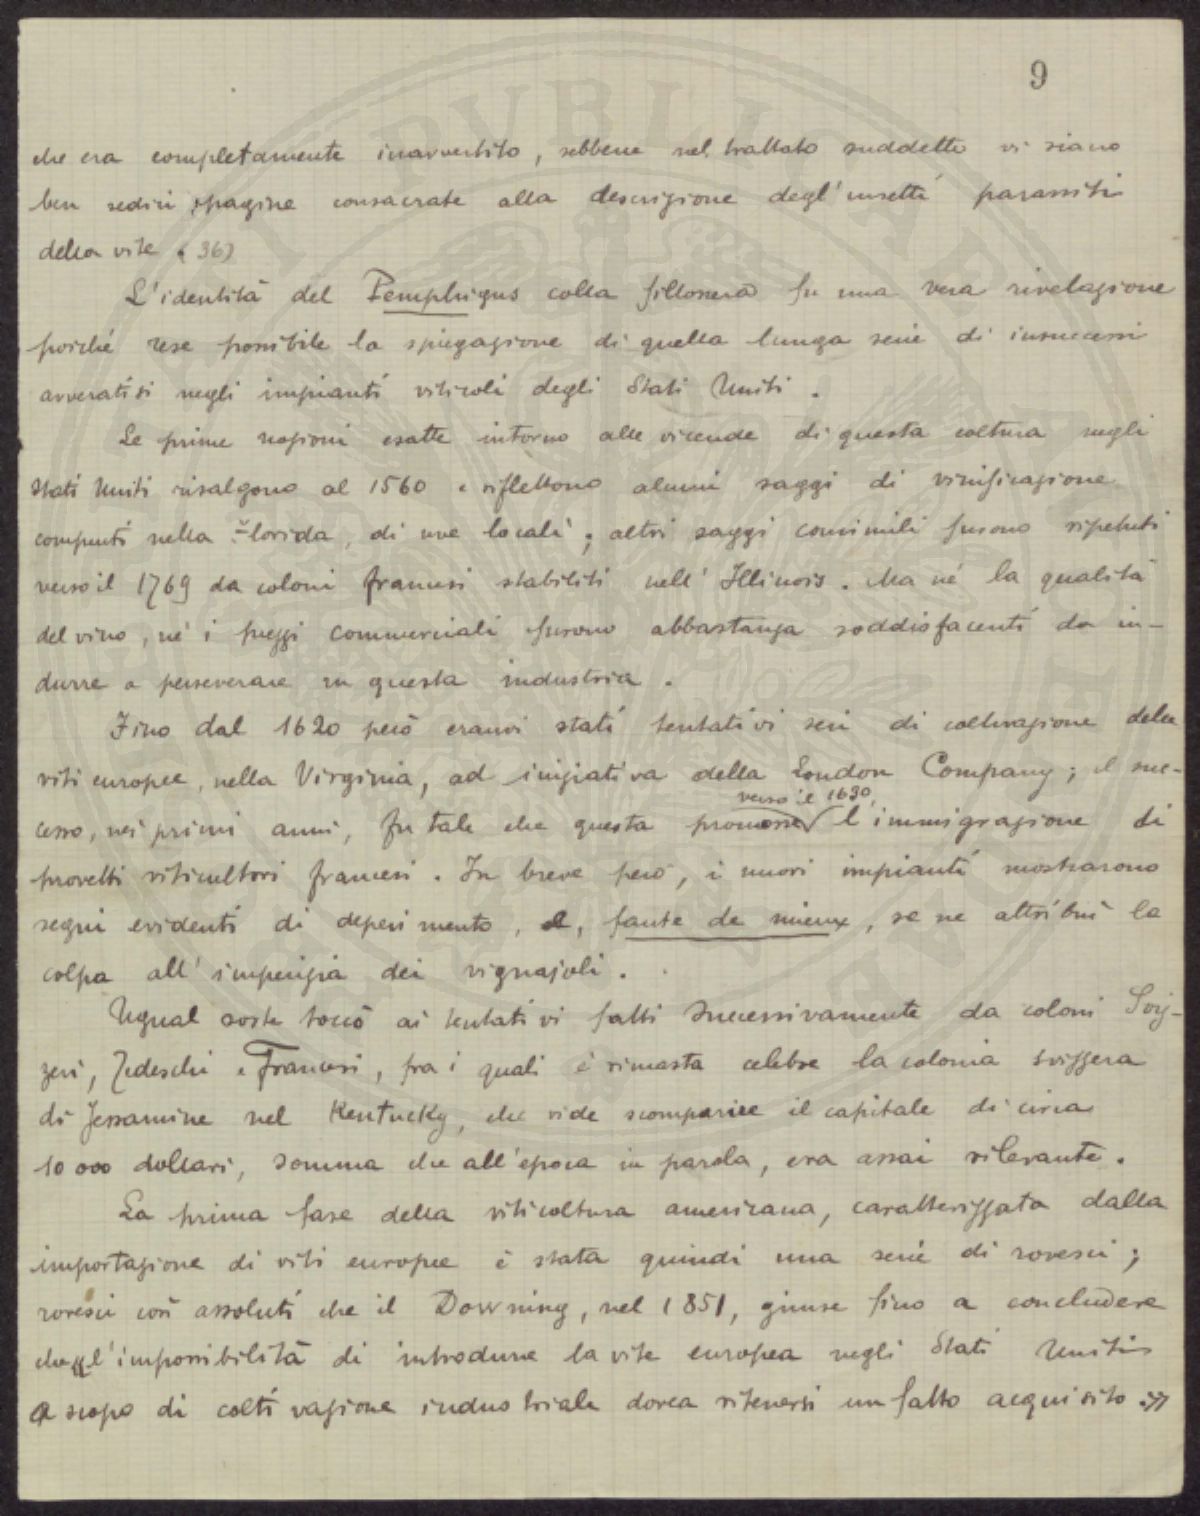 9
che era completamente inavvertito, sebbene nel trattato suddetto vi siano
ben sedici pagine consacrate alla descrizione degl'insetti parassiti
della vite (36)
L'identità del Pemphigus colla fillossera fu una vera rivelazione
poiché rese possibile la spiegazione di quella lunga serie di insuccessi
avveratisi negli impianti viticoli degli Stati Uniti.
Le prime nozioni esatte intorno alle vicende di questa coltura negli
Stati Uniti risalgono al 1560 e riflettono alcuni saggi di vinificazione
compiuti nella Florida, di uve locali; altri saggi consimili furono ripetuti
verso il 1769 da coloni francesi stabiliti nell'Illinois. Ma né la qualità
del vino, né i prezzi commerciali furono abbastanza soddisfacenti da in-
durre a perseverare in questa industria.
Fino dal 1620 però eranvi stati tentativi seri di coltivazione delle
viti europee, nella Virginia, ad iniziativa della London Company; il suc-
verso il 1630,
cesso, nei primi anni, fu tale che questa promosse l'immigrazione di
provetti viticultori francesi. In breve però, i nuovi impianti mostrarono
segni evidenti di deperimento, e, faute de mieux, se ne attribuì la
colpa all'imperizia dei vignajoli.
Ugual sorte toccò ai tentativi fatti successivamente da coloni Sviz-
zeri, Tedeschi e Francesi, fra i quali è rimasta celebre la colonia svizzera
di Jessamine nel Kentucky, che vide scomparire il capitale di circa
10 000 dollari, somma che all'epoca in parola, era assai rilevante.
La prima fase della viticoltura americana, caratterizzata dalla
importazione di viti europee è stata quindi una serie di rovesci;
rovesci così assoluti che il Downing, nel 1851, giunse fino a concludere
che «l'impossibilità di introdurre la vite europea negli Stati Uniti
a scopo di coltivazione industriale dovea ritenersi un fatto acquisito.»